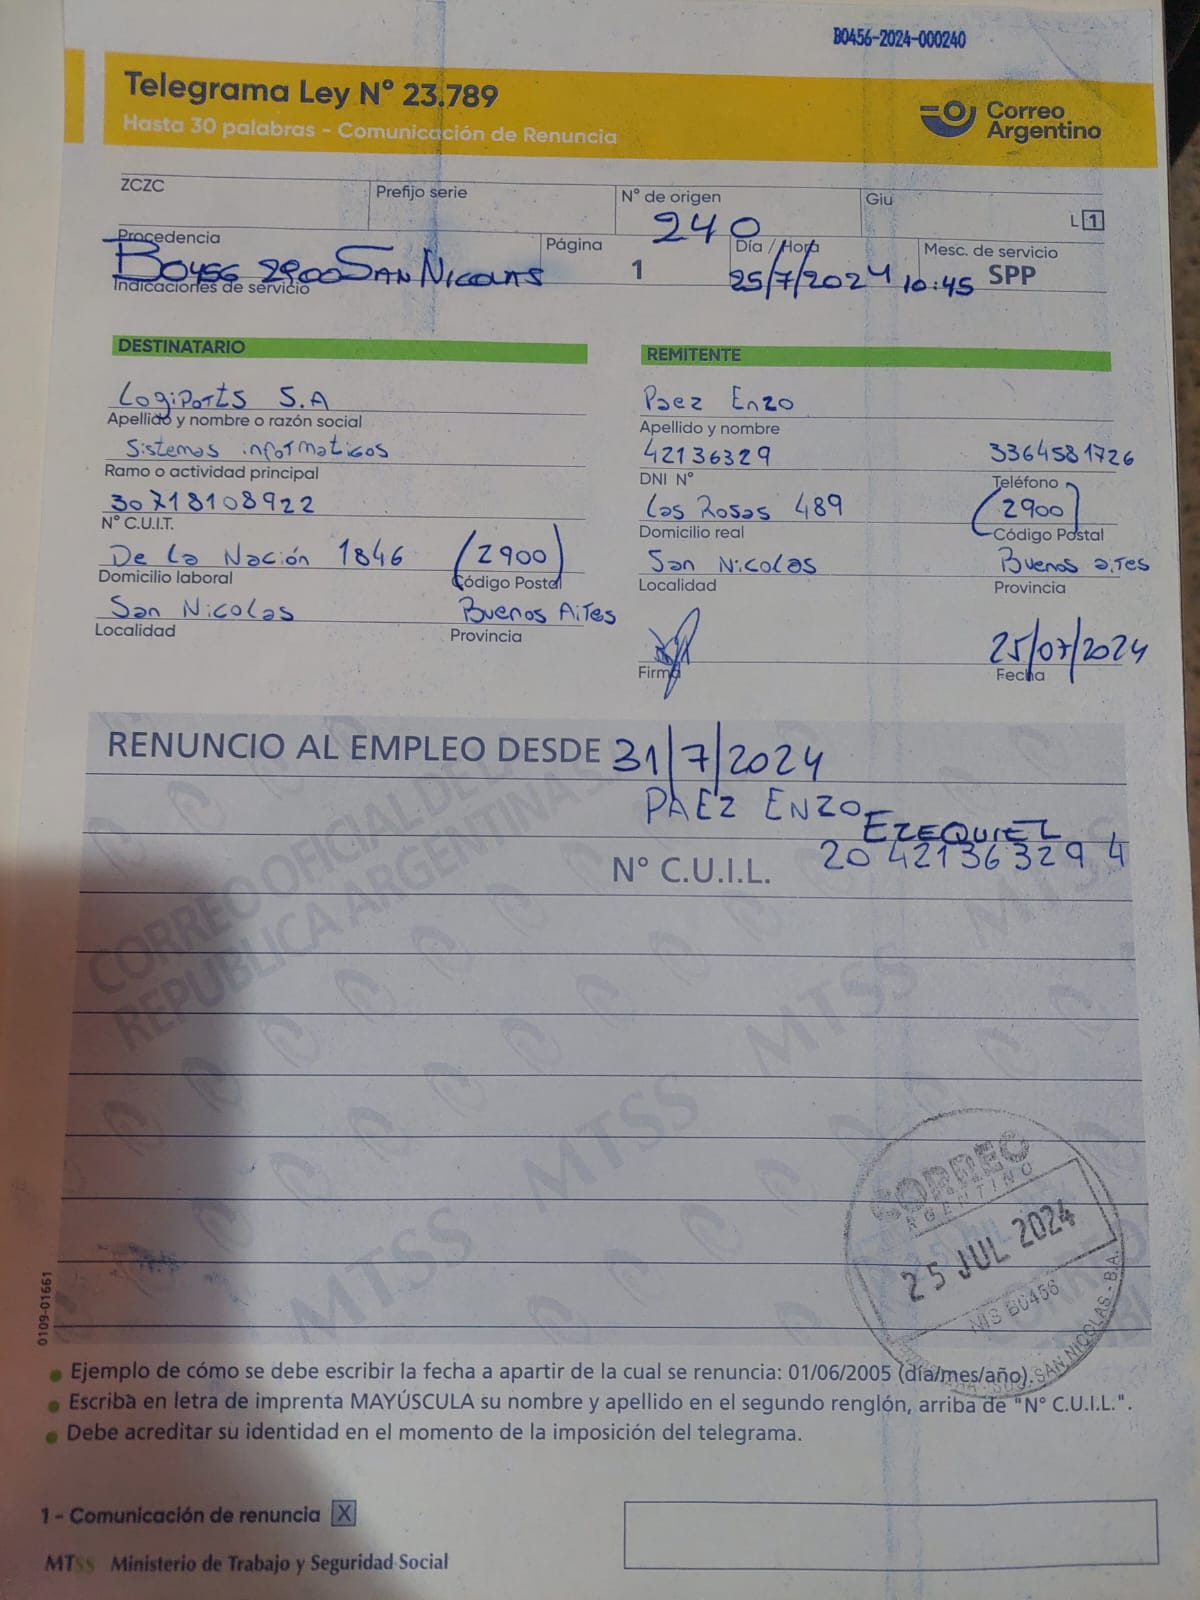 B0456-2024-000240
Telegrama Ley N° 23.789
Hasta 30 palabras - Comunicación de Renuncia
Correo
Argentino
ZCZC
Prefijo serie
N° de origen
240
Giu
L 1
Procedencia
B0456 2900 SAN NICOLAS
Indicaciones de servicio
Página
1
Día / Hora
25/7/2024 10:45
Mesc. de servicio
SPP
DESTINATARIO
LogiPorts S.A
Apellido y nombre o razón social
Sistemas informaticos
Ramo o actividad principal
30718108922
N° C.U.I.T.
De La Nación 1846 (2900)
Domicilio laboral Código Postal
San Nicolas Buenos Aires
Localidad Provincia
REMITENTE
Paez Enzo
Apellido y nombre
42136329 3364581726
DNI N° Teléfono
Las Rosas 489 (2900)
Domicilio real Código Postal
San Nicolas Buenos aires
Localidad Provincia
25/07/2024
Firma Fecha
RENUNCIO AL EMPLEO DESDE 31/7/2024
PAEZ ENZO EZEQUIEL
N° C.U.I.L. 20 42136329 4
CORREO OFICIAL DE LA
REPUBLICA ARGENTINA S
MTSS
MTSS
MTSS
MTSS
CORREO
ARGENTINO
25 JUL 2024
MS B0456
SUC. SAN NICOLAS - B.A.
0109-01661
Ejemplo de cómo se debe escribir la fecha a apartir de la cual se renuncia: 01/06/2005 (día/mes/año).
Escriba en letra de imprenta MAYÚSCULA su nombre y apellido en el segundo renglón, arriba de "N° C.U.I.L.".
Debe acreditar su identidad en el momento de la imposición del telegrama.
1 - Comunicación de renuncia X
MTSS Ministerio de Trabajo y Seguridad Social